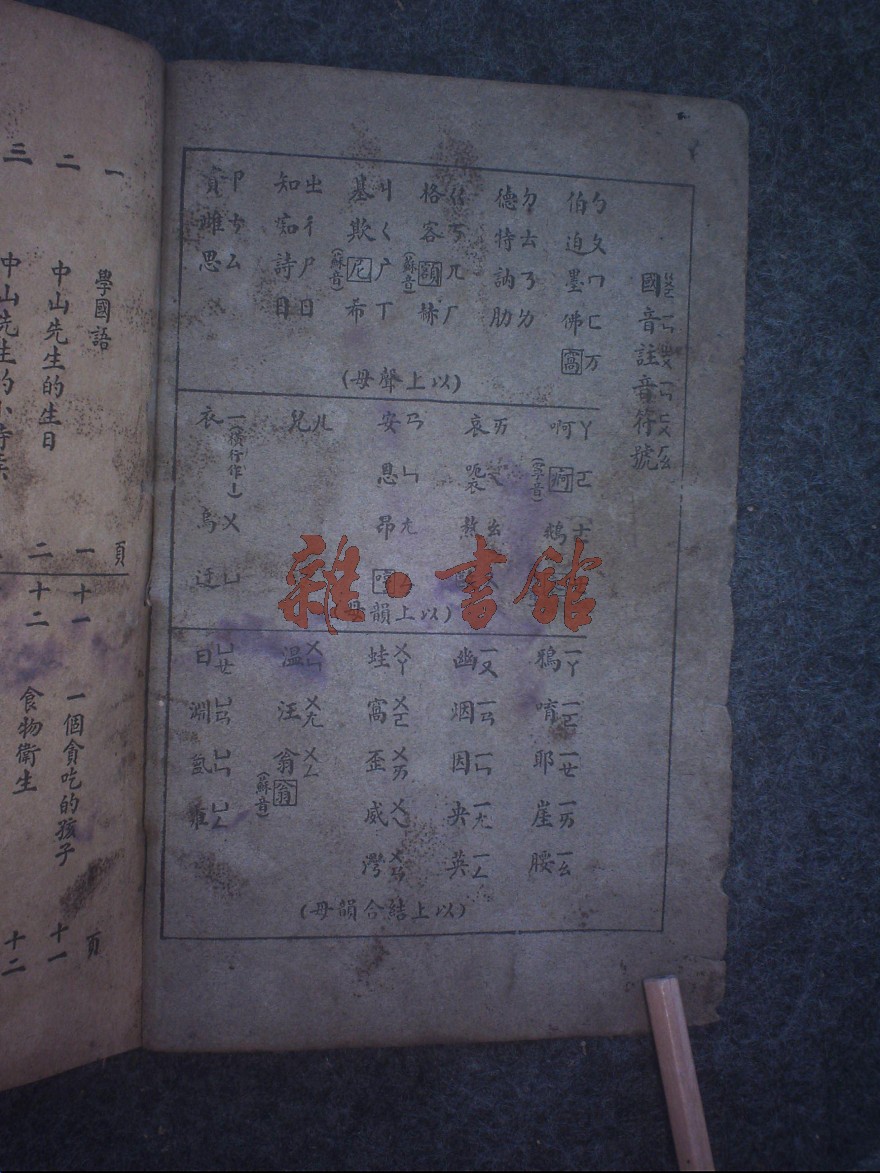 國音註音符號
伯ㄅ迫ㄆ墨ㄇ佛ㄈ窩万
德ㄉ特ㄊ訥ㄋ肋ㄌ
格ㄍ客ㄎ額兀(蘇音)赫ㄏ
基ㄐ欺ㄑ尼广(蘇音)希ㄒ
知ㄓ痴ㄔ詩ㄕ日ㄖ
資ㄗ雌ㄘ思ㄙ
(以上聲母)
啊ㄚ
哀ㄞ
熬ㄠ
安ㄢ恩ㄣ昂ㄤ
兒ㄦ
衣一(橫行作丨)烏ㄨ迂ㄩ
(以上韻母)
鴉ㄧㄚ唷ㄧㄛ耶ㄧㄝ崖ㄧㄞ腰ㄧㄠ
幽ㄧㄡ烟ㄧㄢ因ㄧㄣ央ㄧㄤ英ㄧㄥ
蛙ㄨㄚ窩ㄨㄛ歪ㄨㄞ威ㄨㄟ灣ㄨㄢ
溫ㄨㄣ汪ㄨㄤ翁ㄨㄥ翁(蘇音)
曰ㄩㄝ淵ㄩㄢ氳ㄩㄣ雍ㄩㄥ
(以上結合韻母)
頁
一 學國語 一
二 中山先生的生日 二
三 中山先生的小時候
頁
十一 一個貪吃的孩子 十一
十二 食物衛生 十二
雜·書館